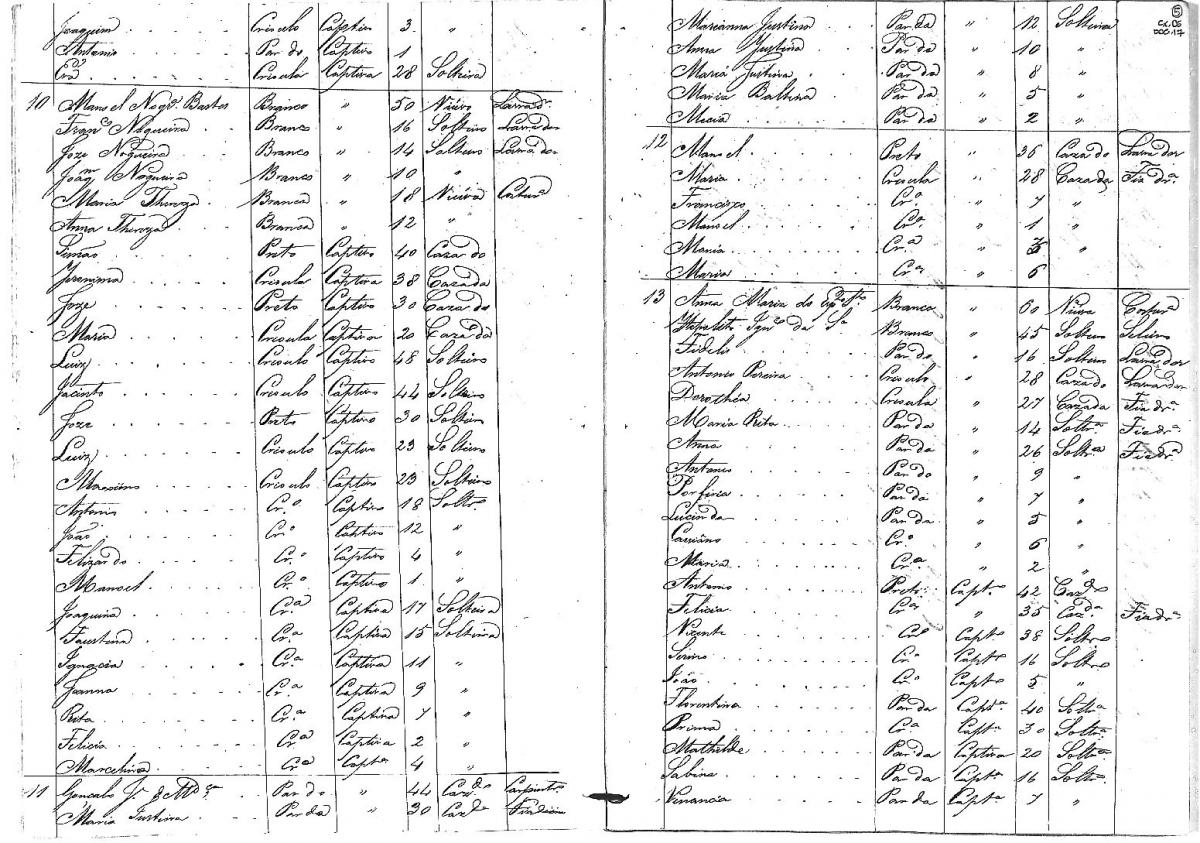 Joaquim Crioulo Captivo 3 "
Antonio Pardo Captivo 1
Eva Crioula Captiva 28 Solteira
10 Manoel Nogra. Bastos Branco " 50 Viuvo Lavrador
Franco Nogueira Branco " 16 Solteiro Lavrador
Joze Nogueira Branco " 14 Solteiro Lavrador
Joaqm Nogueira Branco " 10 "
Maria Thereza Branca " 18 Viuva Costura
Anna Thereza Branca " 12 "
Simão Preto Captivo 40 Cazado
Jeronima Crioula Captiva 38 Cazada
Joze Preto Captivo 30 Cazado
Maria Crioula Captiva 20 Cazada
Luiz Crioulo Captivo 48 Solteiro
Jacinto Crioulo Captivo 44 Solteiro
Joze Preto Captivo 30 Solteiro
Luiz Crioulo Captivo 23 Solteiro
Maximo Crioulo Captivo 23 Solteiro
Antonio Cr.o Captivo 18 Soltro
João Cr.o Captivo 12 "
Felizardo Cr.o Captivo 4 "
Manoel Cr.o Captivo 1 "
Joaquina Cr.a Captiva 17 Solteira
Faustina Cr.a Captiva 15 Solteira
Ignacia Cr.a Captiva 11 "
Joanna Cr.a Captiva 9 "
Rita Cr.a Captiva 7 "
Felicia Cr.a Captiva 2 "
Marcelina Cr.a Capta 4 "
11 Goncalo Je Pardo " 44 Cazdo Carpintro
Maria Justina Parda " 30 Cazda Fiadeira
5
CX.05
DOC.17
Marianna Justina Parda " 12 Solteira
Anna Justina Parda " 10 "
Maria Justina Parda " 8 "
Maria Balbina Parda " 5 "
Parda " 2 "
12 Manoel Preto " 36 Cazado Lavrador
Maria Crioula " 28 Cazada Fiadra
Francisco Cr.o " 7 "
Manoel Cr.o " 1 "
Maria Cr.a "
Maria Cr.a " 6
13 Anna Maria do Espto Sto Branca " 60 Viuva Costura
Hipolito Igno da Sa Branco " 45 Solteiro Seleiro
Fidelis Pardo " 16 Solteiro Lavrador
Antonio Pereira Crioulo " 28 Cazado Lavrador
Dorothea Crioula " 27 Cazada Fiadra
Maria Rita Parda " 14 Soltra Fiadra
Anna Parda " 26 Soltra Fiadra
Antonio Pardo " 9 "
Porfiria Parda " 7 "
Lucinda Parda " 5 "
Cassiano Cr.o " 6 "
Maria Cr.a " 2 "
Antonio Preto Capto 42 Cazdo
Felicia Cr.a " 35 Cazda Fiadra
Vicente Cr.o Capto 38 Soltro
Cr.o Capto 16 Soltro
João Cr.o Capto 5 "
Florentina Parda Capta 40 Soltra
Prima Cr.a Capta 30 Soltra
Mathilde Parda Captiva 20 Soltra
Sabina Parda Capta 16 Soltra
Venancia Parda Capta 7 "